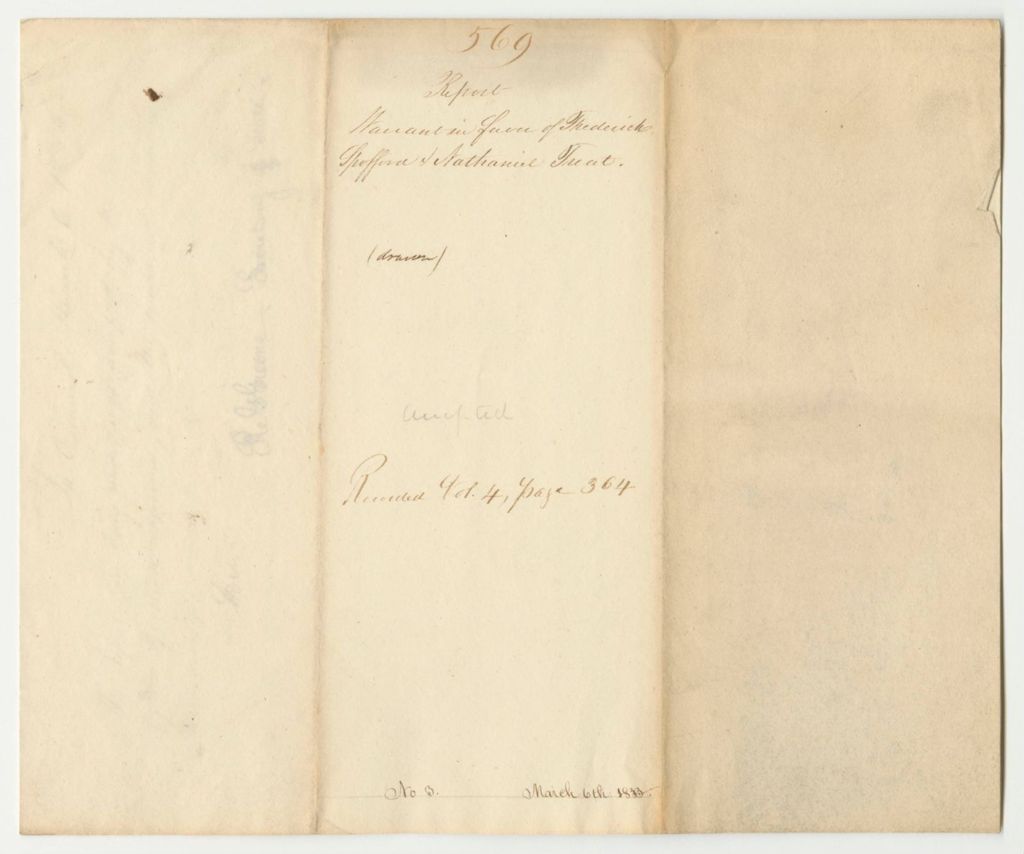 569
Report
Warrant in favor of Frederick
Spofford & Nathaniel Treat.
(drawn)
accepted
Recorded Vol. 4, page 364
No 3.
March 6th 1833.